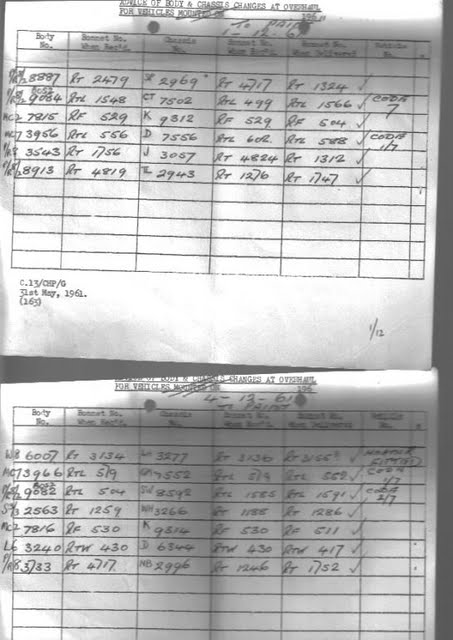 ADVICE OF BODY & CHASSIS CHANGES AT OVERHAUL
FOR VEHICLES MOUNTED ON 196
TO PAINT
1-12-61
Body No. Bonnet No. When Rec'd. Chassis No. Bonnet No. When Rec'd. Bonnet No. When Delivered
8887 RT 2479 2969 RT 4717 RT 1324 ✓
9084 RTL 1548 CT 7502 RTL 499 RTL 1566 ✓ CODA 7
7815 RF 529 K 9312 RF 529 RF 504 ✓
3956 RTL 556 D 7556 RTL 602 RTL 588 ✓ CODA 1/7
3543 RT 1756 J 3057 RT 4824 RT 1312 ✓
8913 RT 4819 2943 RT 1276 RT 1747 ✓
C.13/CHP/G
31st May, 1961.
(163)
1/12
BODY & CHASSIS CHANGES AT OVERHAUL
FOR VEHICLES MOUNTED ON 196
4-12-61
TO PAINT
Body No. Bonnet No. When Rec'd. Chassis No. Bonnet No. When Rec'd. Bonnet No. When Delivered
W8 6007 RT 3134 3277 RT 3136 ✓ HEATER
3966 RTL 519 7552 RTL 519 RTL 562 ✓ CODA 1/7
9082 RTL 504 SW 8592 RTL 1585 RTL 1591 ✓
2563 RT 1259 WH 3266 RT 1185 RT 1286 ✓
7816 RF 530 K 9314 RF 530 RF 511 ✓
L6 3240 RTW 430 D 6344 RTW 430 RTW 417 ✓
3733 RT 4717 NB 2996 RT 1246 RT 1752 ✓